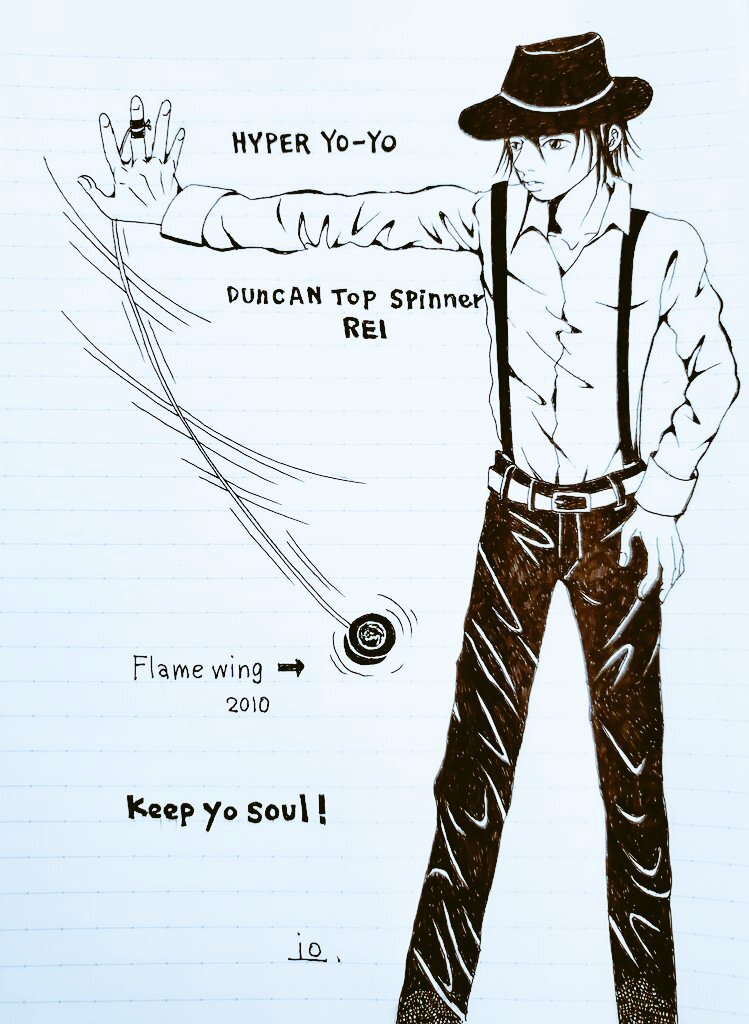 HYPER YO-YO
DUNCAN TOP SPinner
REI
Flame wing →
2010
Keep yo soul!
io.